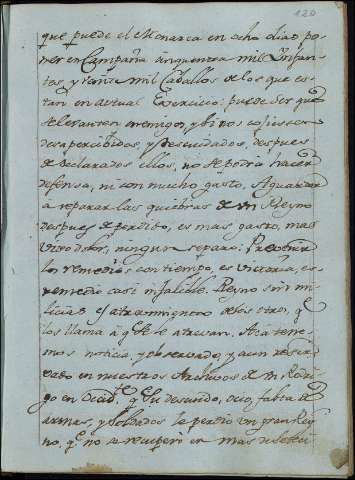 120
que puede el Monarca en ocho dias po
ner en Campaña cinquenta mil Infan
tes, y veinte mil Caballos de los que es
tan en actual Exercicio: puede ser que
se levanten enemigos, y si nos cojiessen
desapercibidos, y descuidados, despues
de declarados ellos, no se podrá hacer
defensa, ni con mucho gasto. Aguardar
a reparar las quiebras de un Reyno
despues de perdido, es mas gasto, mas
vivo dolor, ningun reparo: Prevenir
los remedios con tiempo, es victoria, es
remedio casi infalible. Reyno sin mi
licias es
los llama á q.e se le atrevan. Acá tene
mos noticia, y observado, y aun
en nuestros Archivos de
go en q.e su descuido, ocio, falta de
armas, y soldados se perdio un gran Rey
no, q.e no se recuperó en mas de